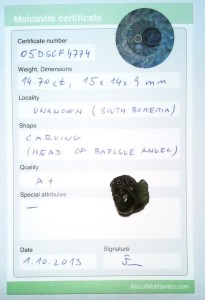 Moldavite certificate
Certificate number
05DSCF4774
Weight, Dimensions
14.70ct, 15x14x9 mm
Locality
UNKNOWN (SOUTH BOHEMIA)
Shape
CARVING
(HEAD OF BAROQUE ANGEL)
Quality
A+
Special attributes
—
Date
1.10.2013
Signature
AboutMoldavites.com